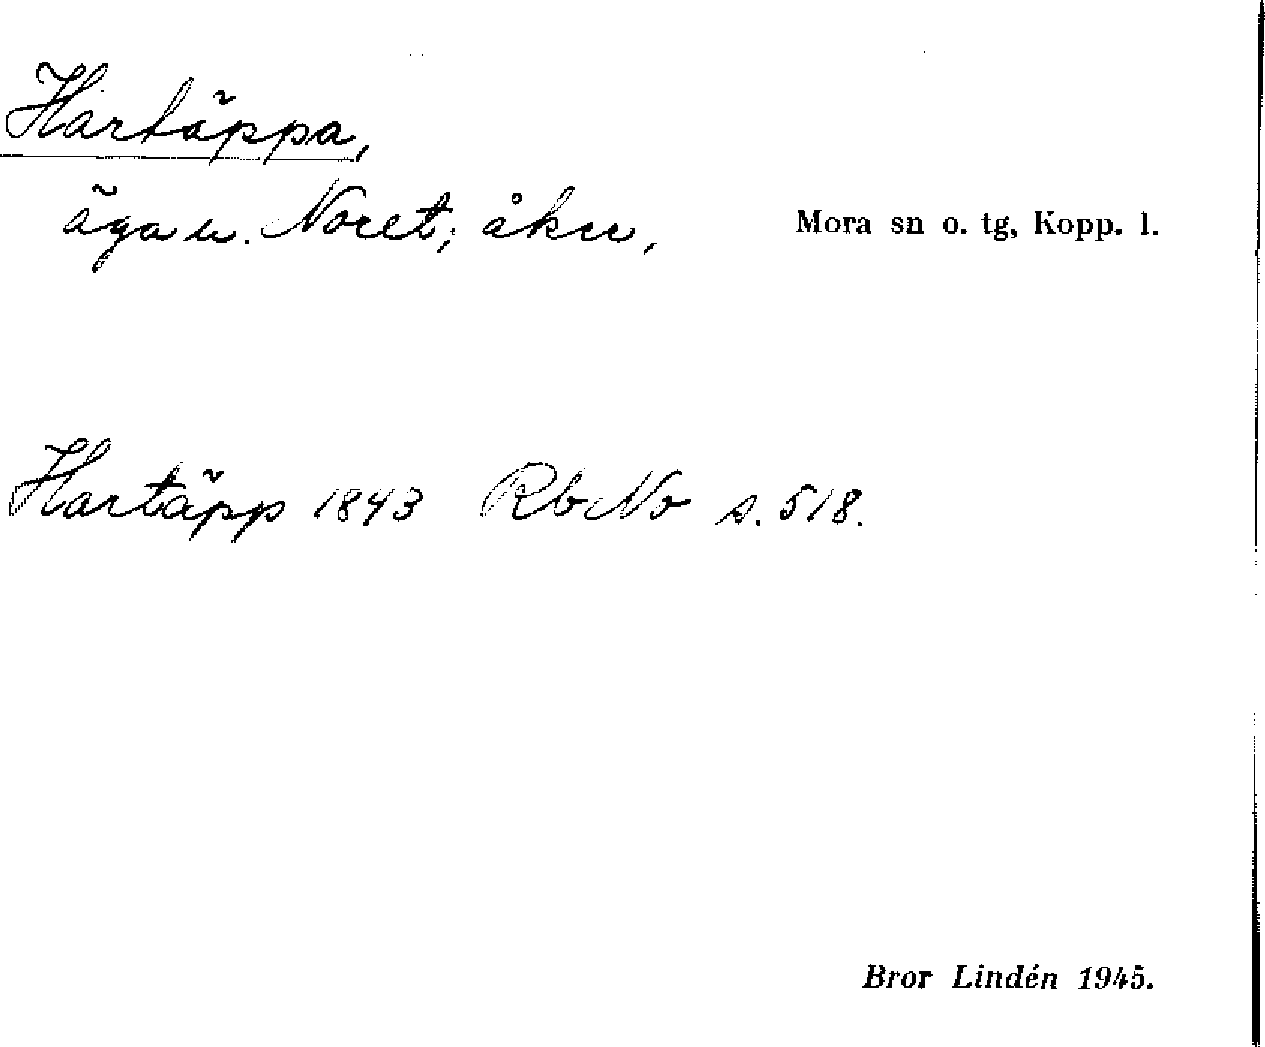 Hartäppa,
äga u. Noret; åker, Mora sn o. tg, Kopp. l.
Hartäpp 1843 RbNo s. 518.
Bror Lindén 1945.